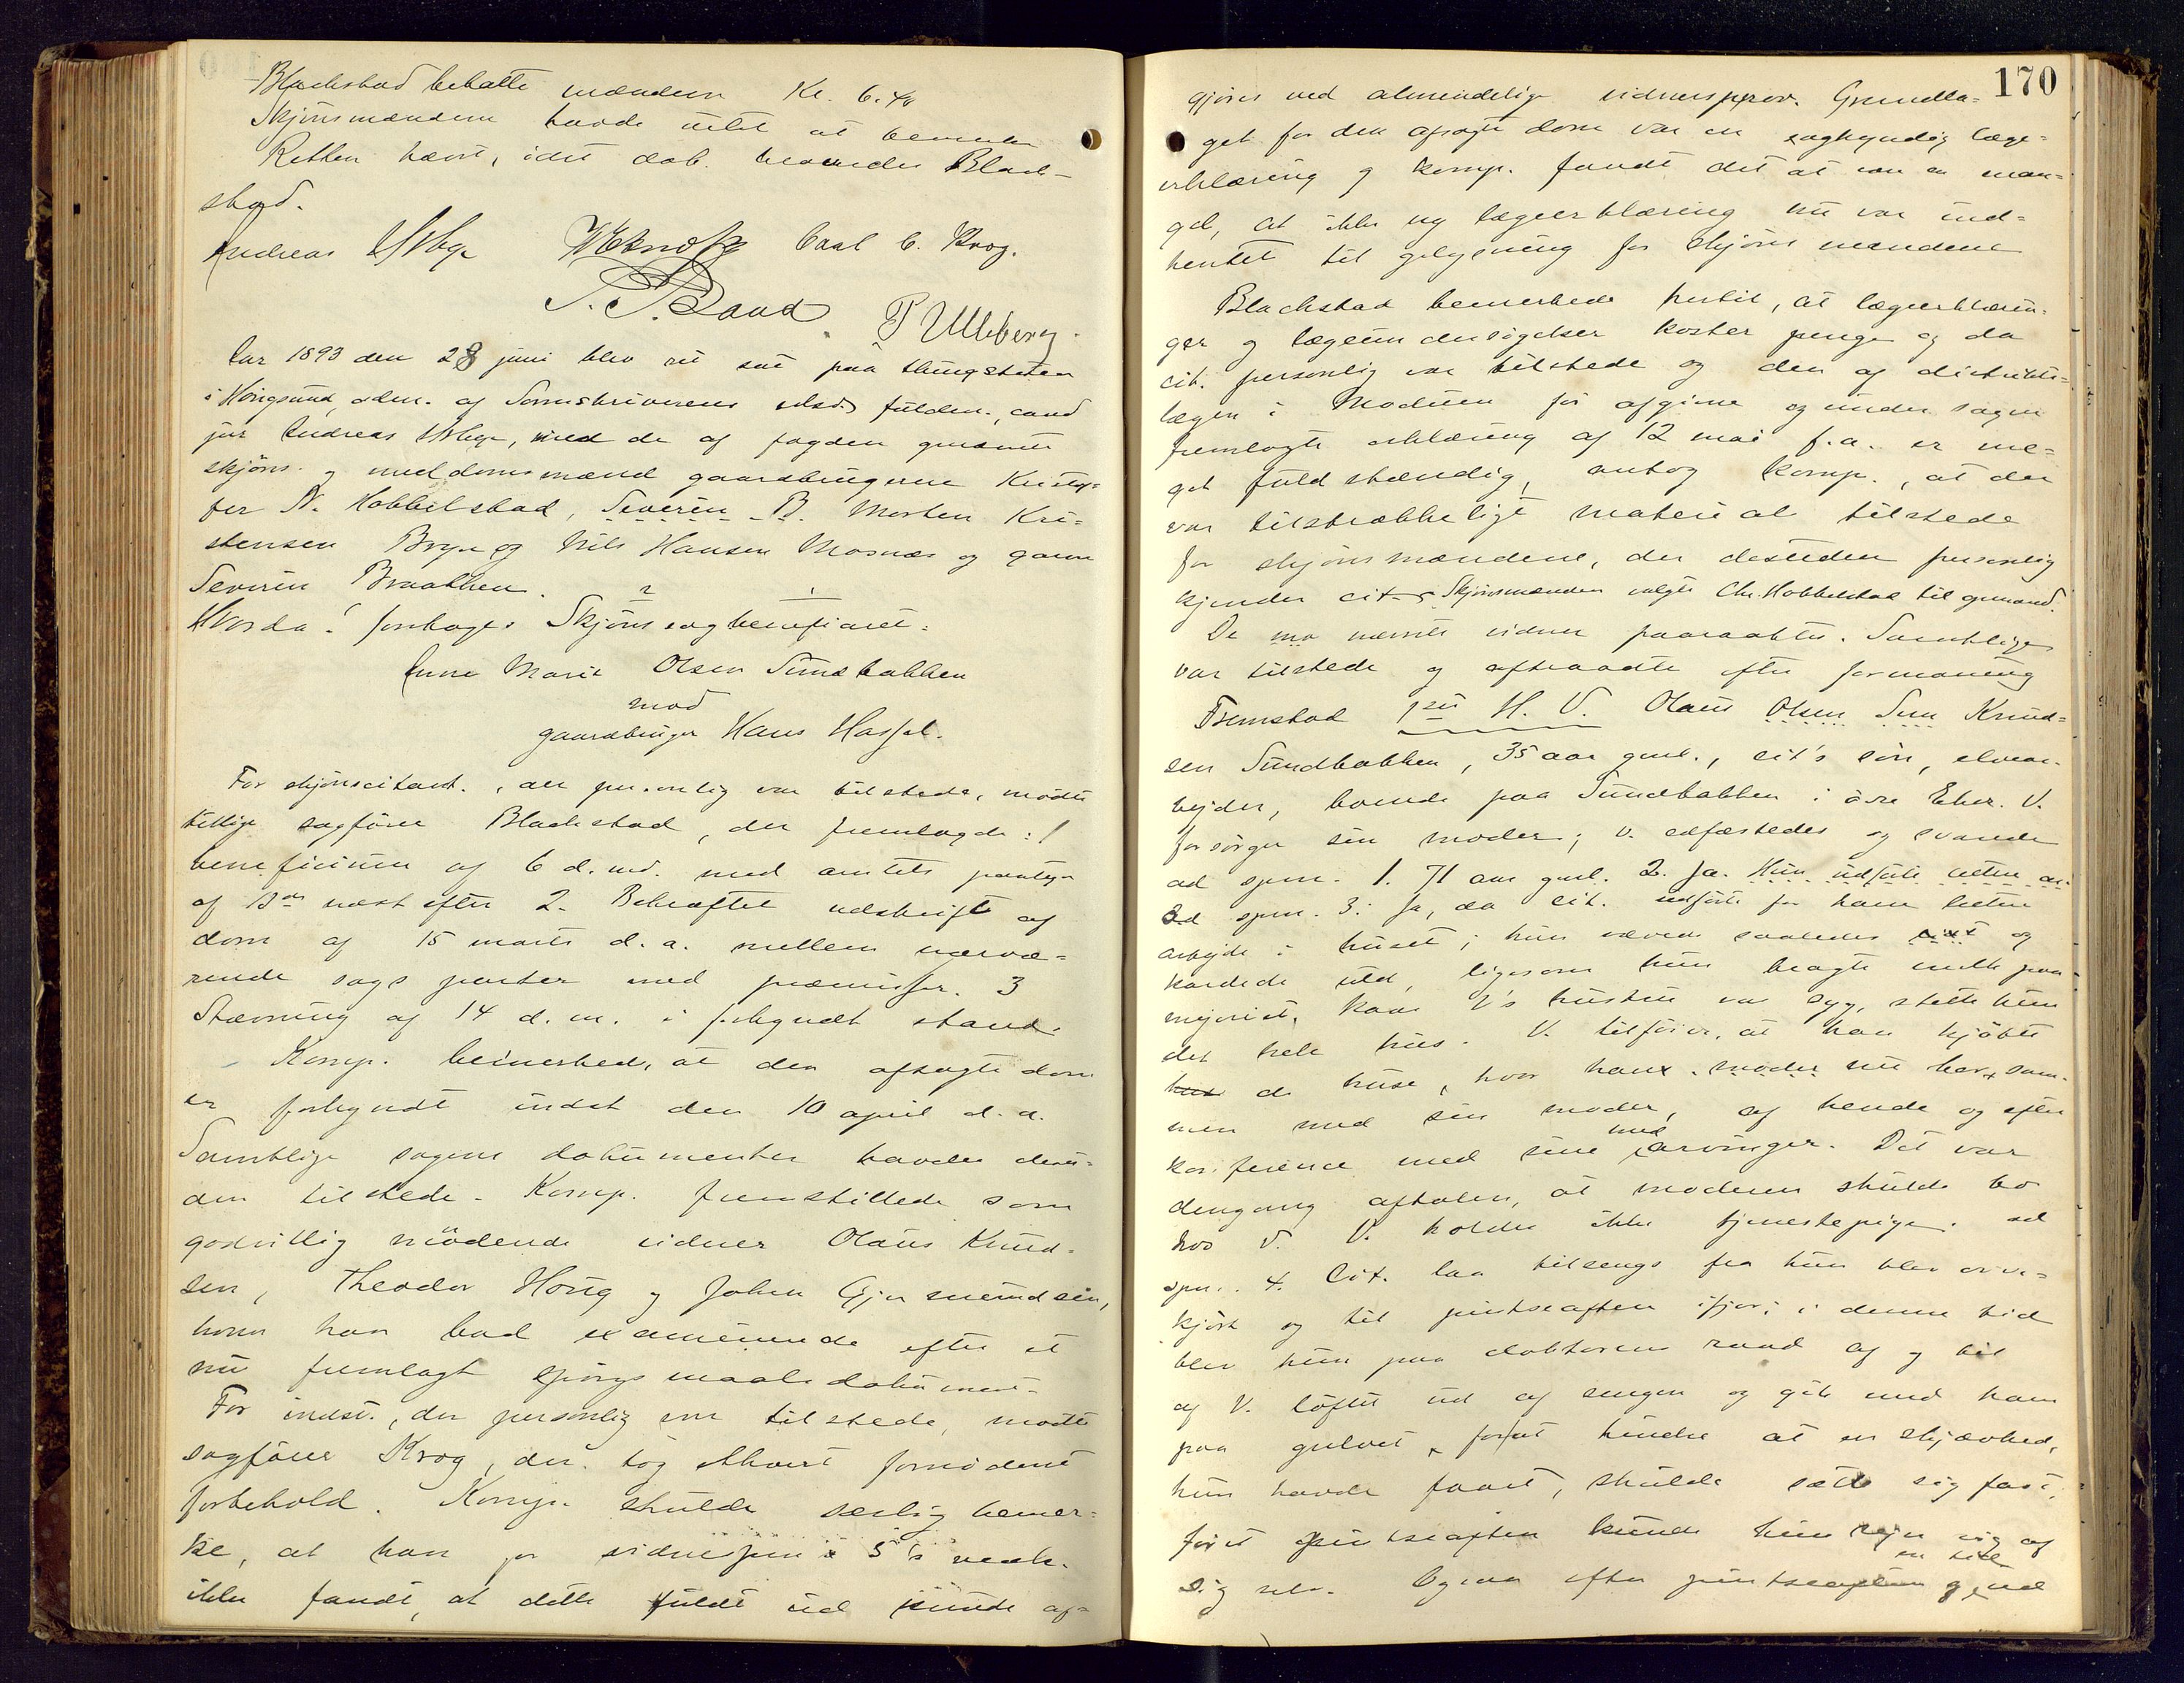 Blackstad bekatte mændene Kl. 6.40
Skjønsmændene havde intet at bemerke
Retten hævet, idet dob. beværdes Black-
stad.
Andreas Carl C. Krog.
P Ulleberg.
Aar 1893 den 28 juni blev ret sat paa thingstuen
i Hougsund, adm. af Sorenskriverens edsv. fuldm., cand
jur Andreas, med de af fogden opnævnte
skjøns- og meddomsmænd gaardbrugerne Kristof-
fer N. Hobbelstad, Severin B. Morten Kri-
stensen Brye og Nils Hansen Mosnæs og
Severin Braathen.
Hvorda! foretoges Skjøns sag beneficeret:
Anne Marie Olsen Sundbakken
mod
gaardbruger Hans Hassel.
For skjønscitant., der personlig var tilstede, mødte
tillige sagfører Blackstad, der fremlagde: 1
beneficium af 6 d. md. med amtets paategn
af 13de næst efter 2. Bekræftet udskrift af
dom af 15 marts d. a. mellem nærvæ-
rende sags parter med præmisser. 3
Stævning af 14 d. m. i forkyndt stand.
Komp. bemerkede, at den afsagte dom
er forkyndt indst den 10 april d. a.
Samtlige sagens dokumenter havdes desu-
den tilstede. Komp. fremstillede som
godvillig mødende vidner Olaus Knud-
sen, Theodor Houg og Johan Gjermundsen,
hvem han bad examinerede efter et
nu fremlagt spørgsmaals dokument.
For indst., der personlig var tilstede, mødte
sagfører Krog, der tog ethvert fornødent
forbehold. Komp. skulde særlig bemer-
ke, at han 5's
ikke fandt, at dette fuldt ud kunde af-
170
gjøres ved almindelige vidnesprov. Grundla-
get for den afsagte dom var en sagkyndig læge-
erklæring og komp. fandt det at være en man-
gel, at ikke ny lægeerklæring nu var ind-
hentet til oplysning for skjøns mændene
Blackstad bemerkede hertil, at lægeerklærin-
ger og lægeundersøgelser koster penge og da
cit. personlig var tilstede og den af distrikts-
lægen i Modum før afgivne og under sagen
fremlagte erklæring af 12 mai f. a. er me-
get fuldstændig, antog komp., at der
var tilstrækkeligt material tilstede
for skjønsmændene, der desuden personlig
kjender cit. Skjønsmændene valgte Chr. Hobbelstad til formand.
De nævnte vidner paaraabtes. Samtlige
var tilstede og aftraadte efter formaning
Fremstod 1ste H. V. Olaus Olsen Sun Knud-
sen Sundbakken, 35 aar gml., cit's søn, elvear-
bejder, boende paa Sundbakken i øvre Eker. V.
forsørger sin moder; V. edfæstedes og svarede
ad spm. 1. 71 aar gml. 2. Ja. Hun udførte lettere ar-
ad spm. 3: Ja, da cit. udførte for ham lettere
arbejde i huset; hun vævede saaledes og
kardede uld, ligesom hun bragte melk paa
mejeriet. Naar V's hustru var syg, stelte hun
det hele hus. V. tilføier, at han kjøbte
hus de huse, hvor han moder nu bor sam-
men med sin moder, af hende og efter
konference med sine med arvinger. Det var
dengang aftalen, at moderen skulde bo
hos V. V. holder ikke tjenestepige. ad
spm. 4. Cit. laa tilsengs fra hun blev over-
kjørt og til pintseaften ifjor; i denne tid
blev hun paa doktorens raad af og til
af V. løftet ud af sengen og gik med ham
paa gulvet, for at hindre at en skjævhed,
hun havde faaet, skulde sætte sig fast.
Først pintseaften kunde hun rejse sig af
sig selv. Ogsaa efter pintseaften en tid